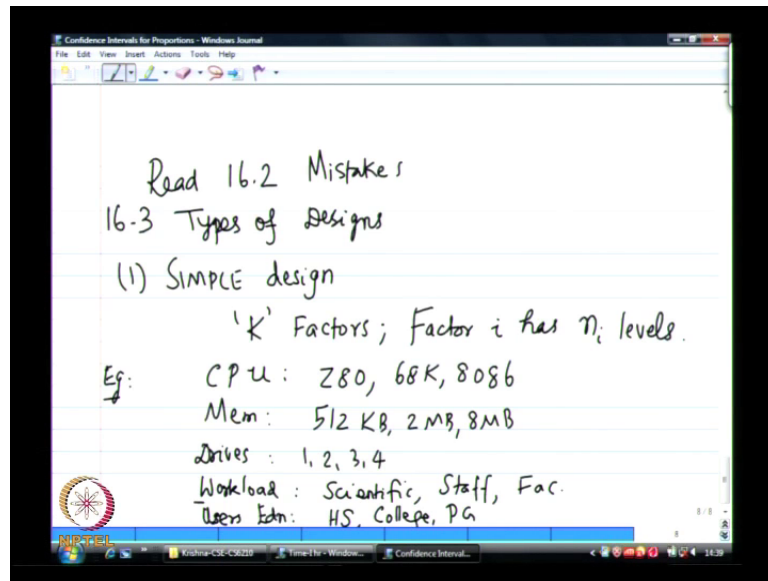 Confidence Intervals for Proportions - Windows Journal
File Edit View Insert Actions Tools Help
Read 16.2 Mistakes
16-3 Types of Designs
(1) SIMPLE design
'K' Factors; Factor i has n_i levels.
Eg: CPU: Z80, 68K, 8086
Mem: 512 KB, 2 MB, 8MB
Drives : 1, 2, 3, 4
Workload : Scientific, Staff, Fac.
Users Edn: HS, College, PG
8 / 8
8
NPTEL
Krishna-CSE-CS6210
Time-1 hr - Window...
Confidence Interval...
14:39